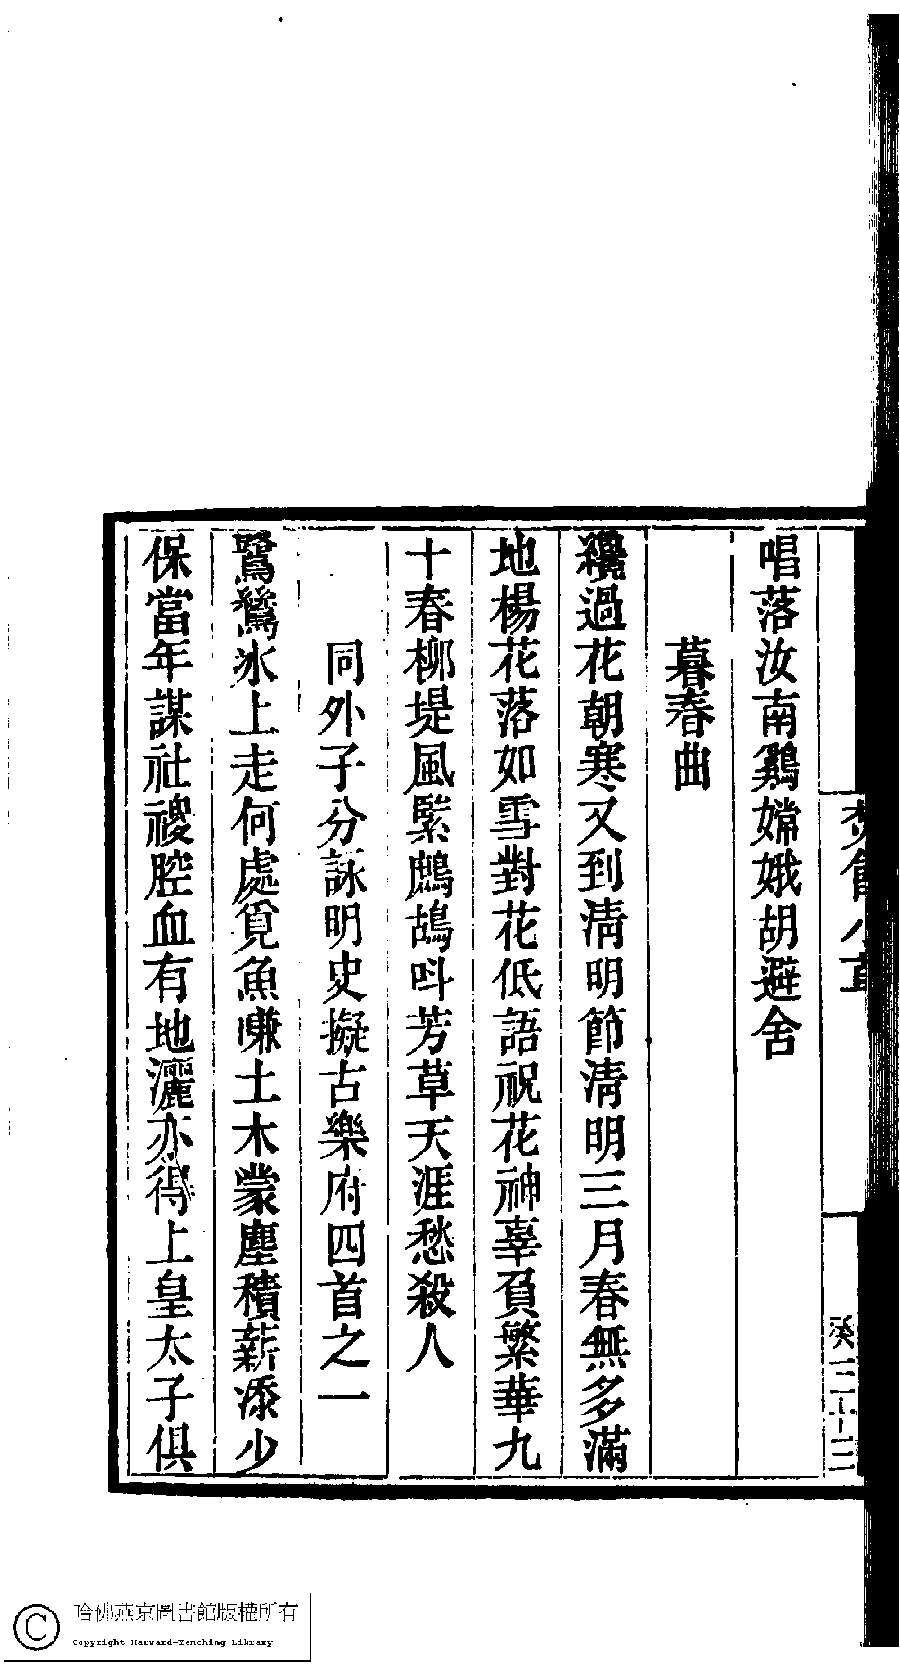 唱落汝南鷄嫦娥胡避舍
暮春曲
纔過花朝寒又到淸明節淸明三月春無多滿
地楊花落如雪對花低語祝花神辜負繁華九
十春柳堤風緊鷓鴣呌芳草天涯愁殺人
同外子分詠明史擬古樂府四首之一
鷺鶿氷上走何處覓魚嗛土木蒙塵積薪添少
保當年謀社稷腔血有地灑亦得上皇太子俱
哈佛燕京圖書館版權所有
Copyright Harvard-Yenching Library